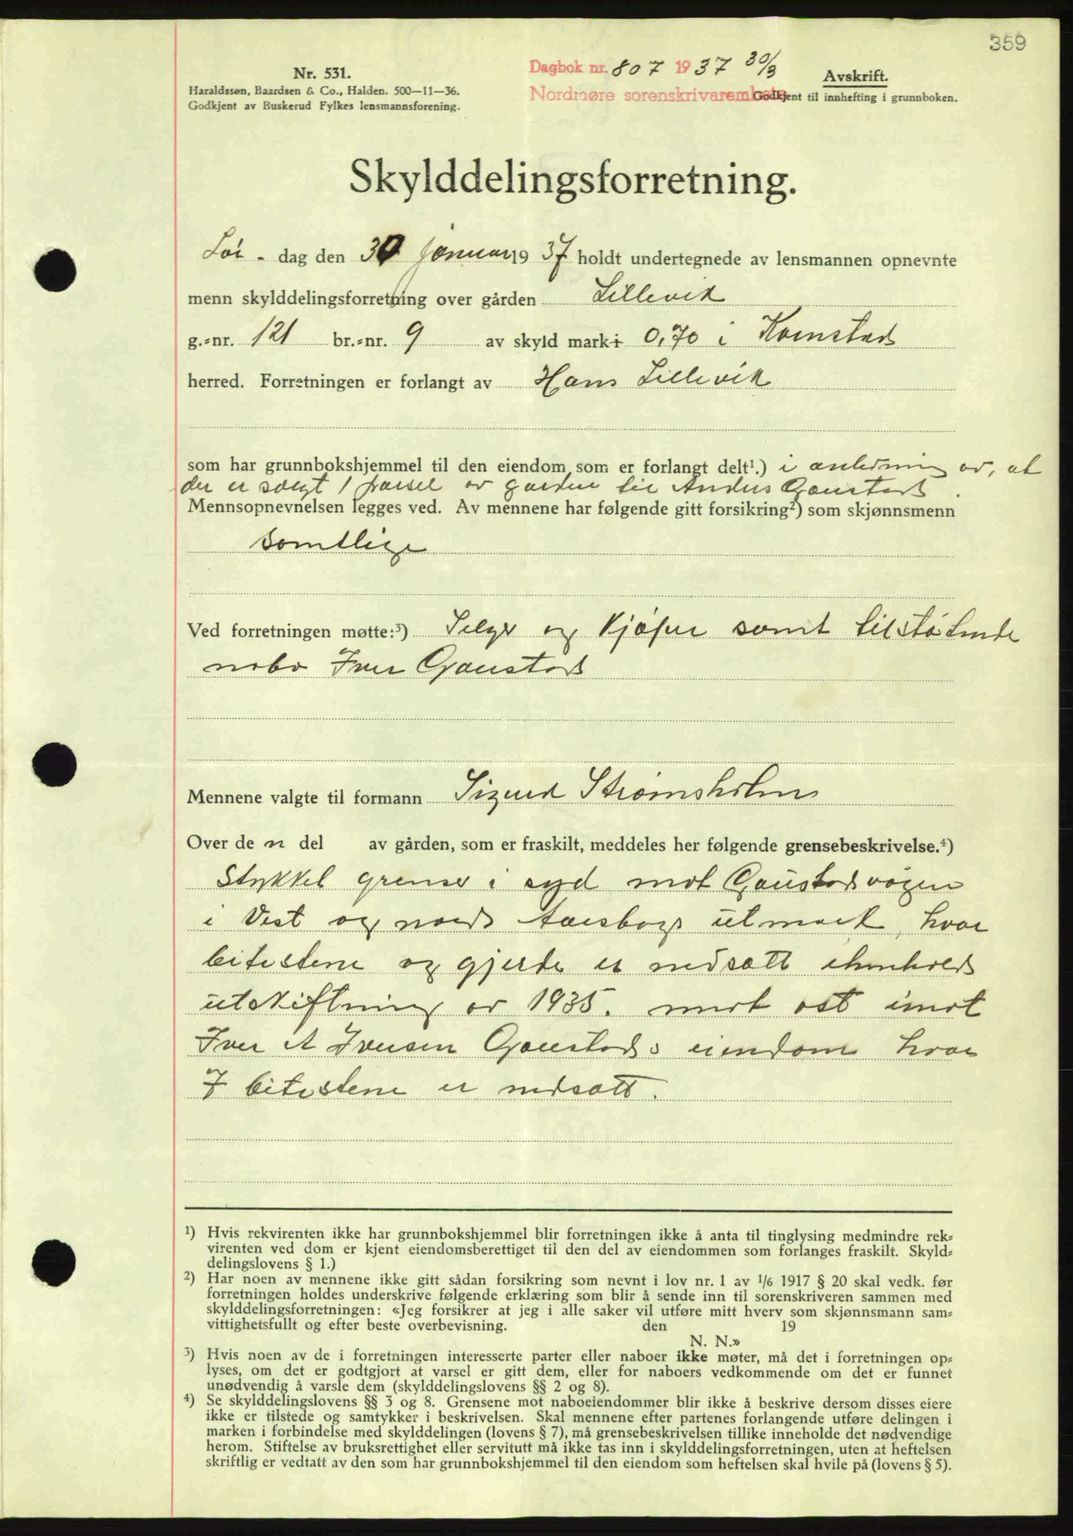 359
Nr. 531.
Haraldssen, Baardsen & Co., Halden. 500—11—36.
Godkjent av Buskerud Fylkes lensmannsforening.
Dagbok nr. 807 1937 30/3
Nordmøre sorenskrivarembete
Avskrift.
Godkjent til innhefting i grunnboken.
Skylddelingsforretning.
Lør-dag den 30 januar 1937 holdt undertegnede av lensmannen opnevnte
menn skylddelingsforretning over gården Lillevik
g.-nr. 121 br.-nr. 9 av skyld mark 0,70 i Kornstad
herred. Forretningen er forlangt av Hans Lillevik
som har grunnbokshjemmel til den eiendom som er forlangt delt¹.) i anledning av, at
der er solgt 1 parsel av garden til Anders Gaustad.
Mennsopnevnelsen legges ved. Av mennene har følgende gitt forsikring²) som skjønnsmenn
samtlige
Ved forretningen møtte:³) Selger og kjøper samt tilstøtende
nabo Iver Gaustad
Mennene valgte til formann Sigurd Strømsholm
Over de n del av gården, som er fraskilt, meddeles her følgende grensebeskrivelse.⁴)
Stykket grenser i syd mot Gaustadvågen
i Vest og nord utmark, hvor
bytestene og gjerde er nedsatt ihenhold
utskiftning av 1935. mot øst imot
Iver A Iversen Gaustads eiendom hvor
7 bytestene er nedsatt.
¹) Hvis rekvirenten ikke har grunnbokshjemmel blir forretningen ikke å anta til tinglysing medmindre rek-
virenten ved dom er kjent eiendomsberettiget til den del av eiendommen som forlanges fraskilt. Skyld-
delingslovens § 1.)
²) Har noen av mennene ikke gitt sådan forsikring som nevnt i lov nr. 1 av 1/6 1917 § 20 skal vedk. før
forretningen holdes underskrive følgende erklæring som blir å sende inn til sorenskriveren sammen med
skylddelingsforretningen: «Jeg forsikrer at jeg i alle saker vil utføre mitt hverv som skjønnsmann sam-
vittighetsfullt og efter beste overbevisning. den 19
N. N.»
³) Hvis noen av de i forretningen interesserte parter eller naboer ikke møter, må det i forretningen op-
lyses, om det er godtgjort at varsel er gitt dem, eller for naboers vedkommende om det er funnet
unødvendig å varsle dem (skylddelingslovens §§ 2 og 8).
⁴) Se skylddelingslovens §§ 3 og 8. Grensene mot naboeiendommer blir ikke å beskrive dersom disses eiere
ikke er tilstede og samtykker i beskrivelsen. Skal mennene efter partenes forlangende utføre delingen i
marken i forbindelse med skylddelingen (lovens § 7), må grensebeskrivelsen tillike inneholde det nødvendige
herom. Stiftelse av bruksrettighet eller servitutt må ikke tas inn i skylddelingsforretningen, uten at heftelsen
skriftlig er vedtatt av den som har grunnbokshjemmel til den eiendom som heftelsen skal hvile på (lovens § 5).